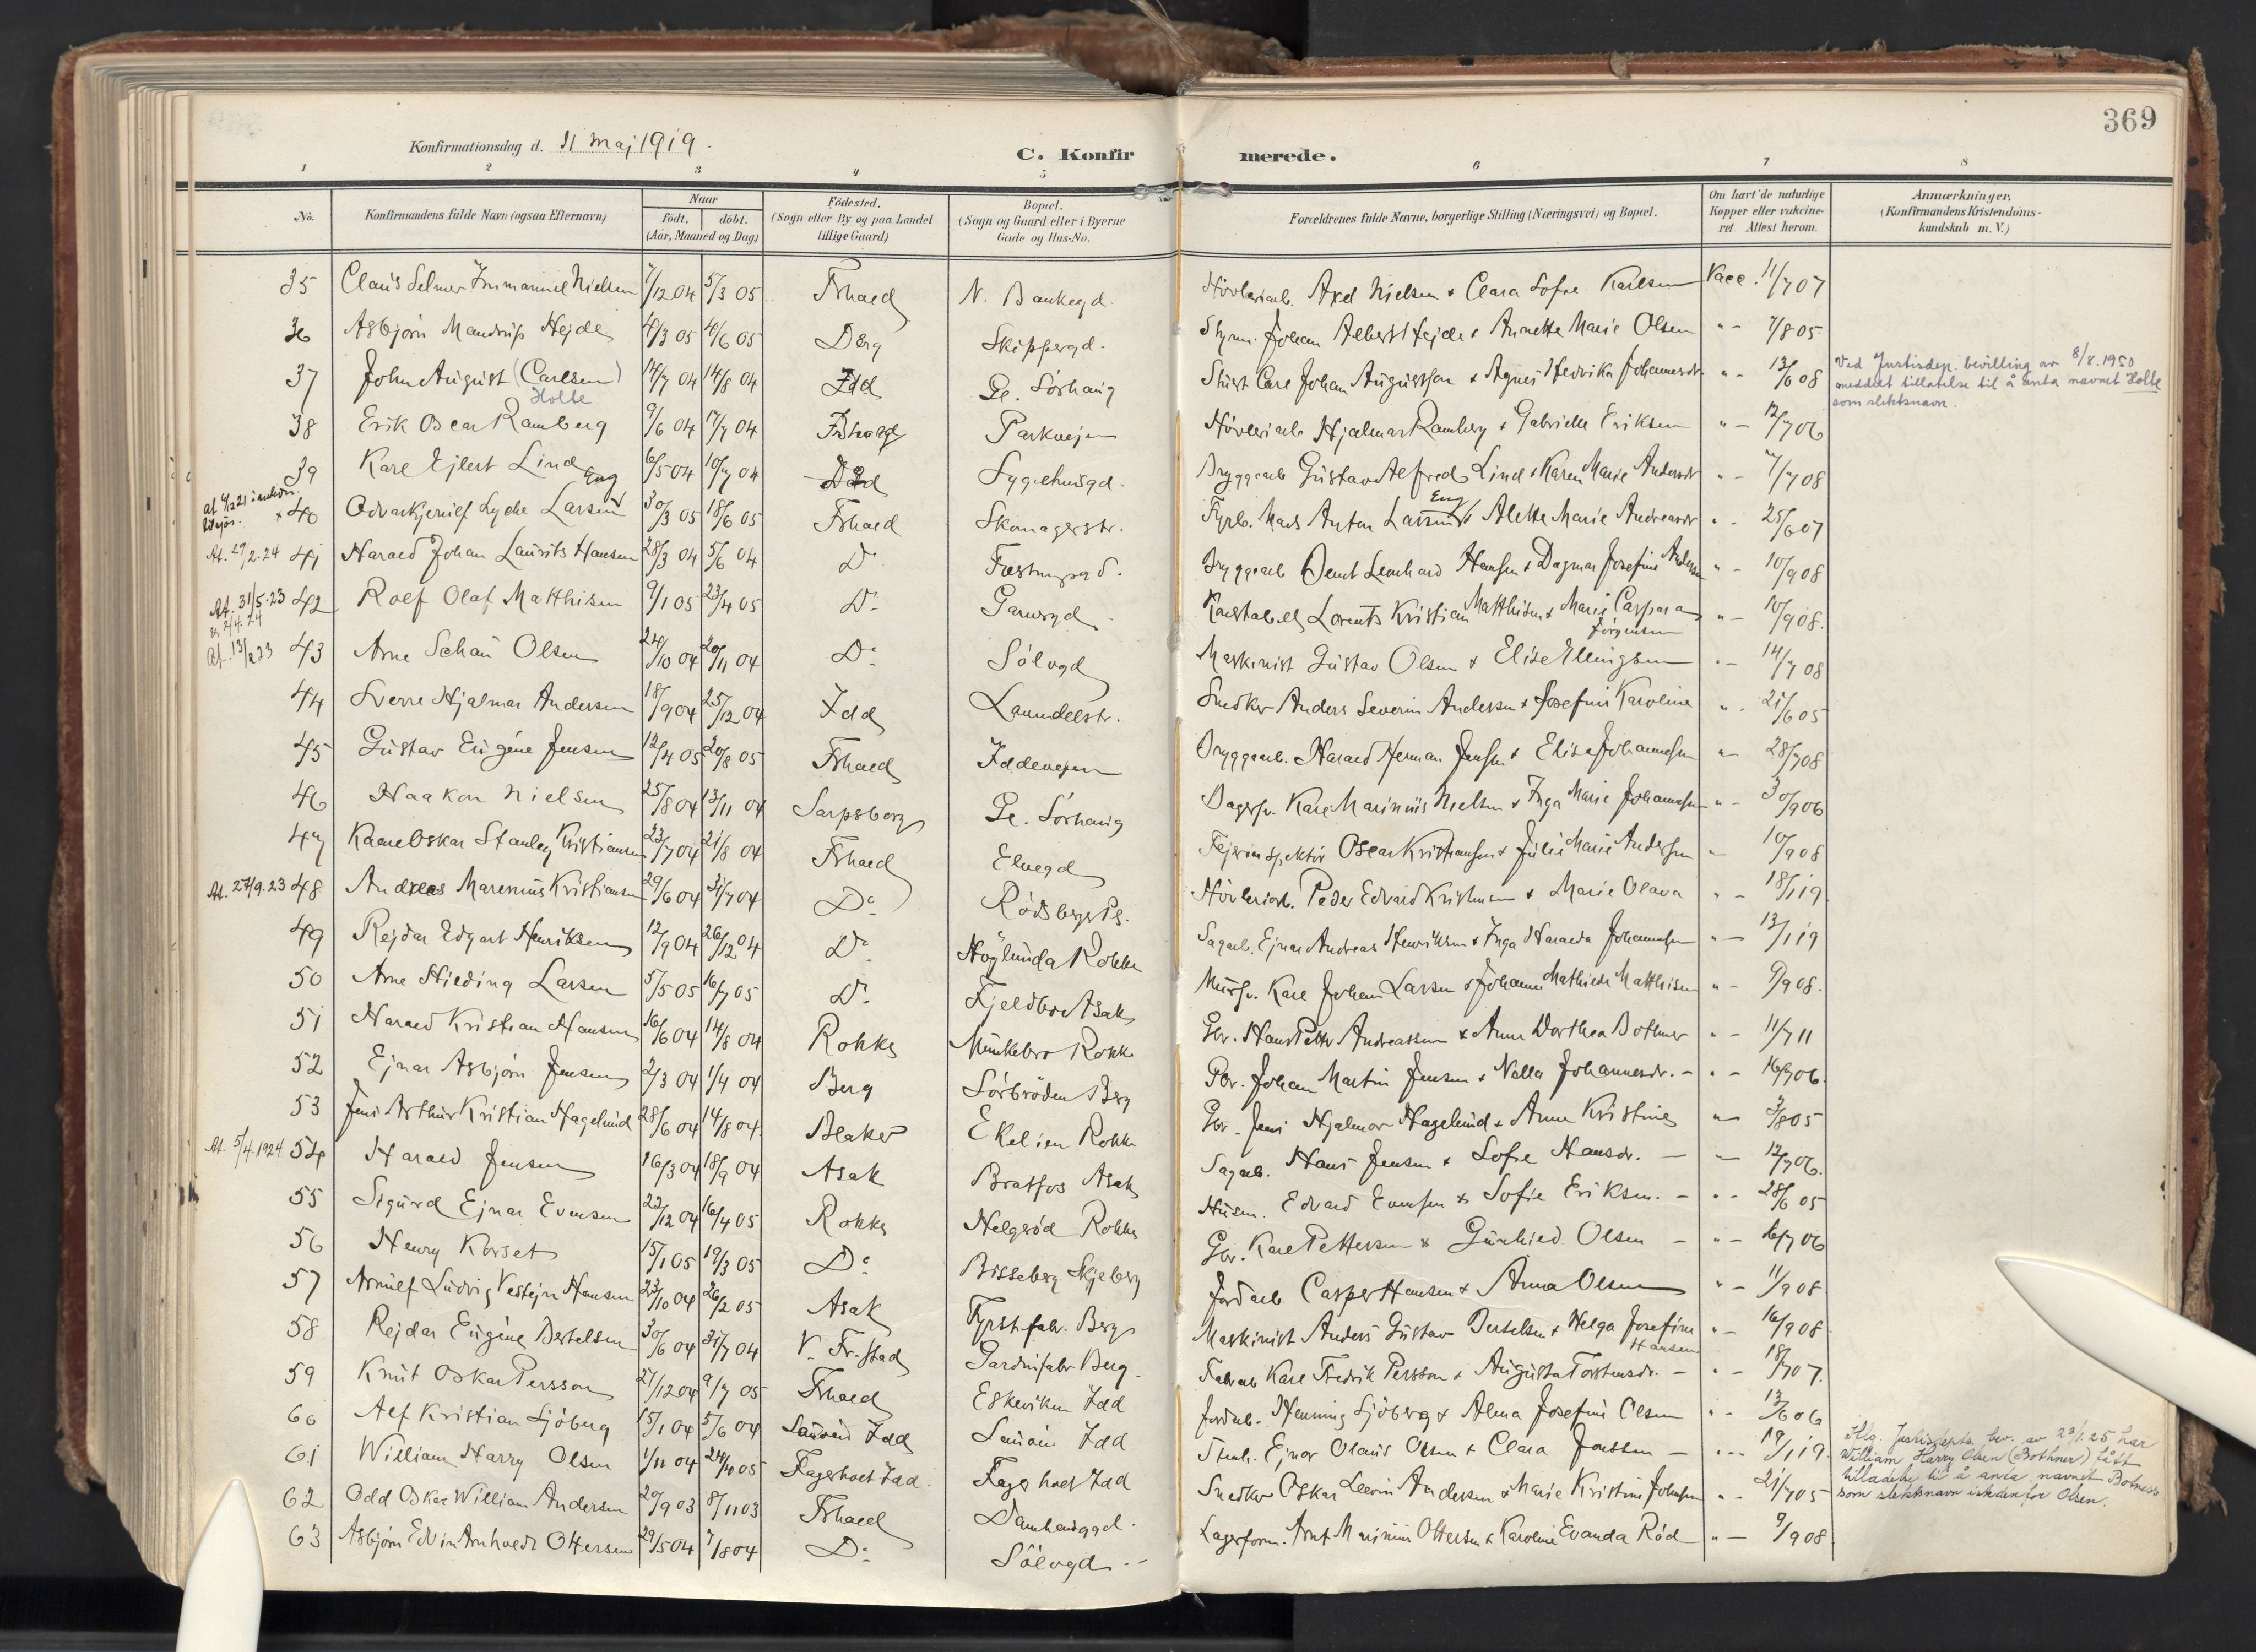 369
Konfirmationsdag d. 11 maj 1919.
C. Konfirmerede.
1 2 3 4 5 6 7 8
No. Konfirmandens fulde Navn (ogsaa Efternavn) Naar født. døbt. (Aar, Maaned og Dag) Födested. (Sogn eller By og paa Landet tillige Gaard) Bopæl. (Sogn og Gaard eller i Byerne Gade og Hus-No. Forældrenes fulde Navne, borgerlige Stilling (Næringsvei) og Bopæl. Om havt de naturlige Kopper eller vakcineret Attest herom. Anmærkninger. (Konfirmandens Kristendomskundskab m. V.)
35 Claus Selmer Immanuel Nielsen 7/12 04 5/3 05 Frhald N. Bankegd. Høvleriarb. Axel Nielsen & Clara Sofie Karlsen Vacc. 11/7 07
36 Asbjørn Mandrup Hejde 4/3 05 4/6 05 Berg Skippergd. Styrm. Johan Albert Hejde & Annette Marie Olsen " - 7/8 05
37 John August (Carlsen) 14/7 04 14/8 04 Idd Gl. Sørhaug Carl Johan Augustson & Agnes Hedvika Johannesdr " - 13/6 08 Ved Justisdep. bevilling av 8/8.1950
Holte meddelt tillatelse til å anta navnet Holte
som slektsnavn.
38 Erik Oscar Ramberg 9/6 04 17/7 04 Frhald Parkvejen Høvleriarb Hjalmar Ramberg & Gabrielle Eriksen " - 12/7 06
39 Karl Ejlert Lind 6/5 04 10/7 04 Sygehusgd. Bryggearb Gustav Alfred Lind & Karen Marie Andersdr " - 7/7 08
Eng Eng
× 40 Odvar Kjerulf Lyche Larsen 30/3 05 18/6 05 Frhald Skomagerstr. Fyrb. Mads Anton Larsen & Alette Marie Andreasdr " - 25/6 07
At. 29/2.24 41 Harald Johan Laurits Hansen 28/3 04 5/6 04 Do Fæstningsgd. Bryggearb Bernt Leonhard Hansen & Dagmar Josefine Andersen " - 10/9 08
At. 31/5.23 42 Rolf Olaf Matthisen 9/1 05 23/4 05 Do Garvergd. Lorents Kristian Matthisen & Marie Caspara " - 10/9 08.
Jørgensen
At. 13/2 23 43 Arne Schau Olsen 24/10 04 20/11 04 Do Sølvgd Maskinist Gustav Olsen & Elise Ellingsen " - 14/7 08
44 Sverre Hjalmar Andersen 18/9 04 25/12 04 Idd Laundelstr. Snedker Anders Severin Andersen & Josefine Karoline " - 21/6 05
45 Gustav Eugéne Jensen 12/4 05 20/8 05 Frhald Iddevejen Bryggearb. Harald Herman Jensen & Elise Johannesen " - 28/7 08
46 Haakon Nielsen 25/8 04 13/11 04 Sarpsborg Gl. Sørhaug Bagersv. Karl Marinius Nielsen & Inga Marie Johannesen " - 30/9 06
47 Kaare Oskar Stanley Kristiansen 23/7 04 21/8 04 Frhald Elvegd Fejerinspektør Oscar Kristiansen & Julie Marie Andersen " - 10/9 08
At. 27/9.23 48 Andreas Marenius Kristiansen 29/6 04 31/7 04 Do Rødsberg Pl. Høvleriarb. Peder Edvard Kristiansen & Marie Olava " - 18/1 19
49 Rejdar Edgart Henriksen 12/9 04 26/12 04 Do Høglunda Rokke Sagarb. Ejnar Andreas Henriksen & Inga Haralda Johannesen " - 13/1 19
50 Arne Hilding Larsen 5/5 05 16/7 05 Do Fjeldbo Asak Mursv. Karl Johan Larsen & Johanne Mathilde Matthisen " - 9/9 08.
51 Harald Kristian Hansen 16/6 04 14/8 04 Rokke Munkebro Rokke Gbr. Hans Petter Andreassen & Anne Dorthea Bothner " - 11/7 11
52 Ejnar Asbjørn Jensen 2/3 04 1/4 04 Berg Sørbrøden Berg Johan Martin Jensen & Nella Johannesdr. - " - 16/7 06.
53 Jens Arthur Kristian Hagelund 28/6 04 14/8 04. Blaker Ekelien Rokke Gbr. Jens Hjalmar Hagelund & Anne Kristine " - 3/8 05
At. 5/4 1924 54 Harald Jensen 16/3 04 18/9 04 Asak Bratfos Asak Sagarb. Hans Jensen & Sofie Hansdr. - " - 12/7 06.
55 Sigurd Ejnar Evensen 22/12 04 16/4 05 Rokke Helgerød Rokke Husm. Edvard Evensen & Sofie Eriksen. - " - 28/6 05
56 Henry Korset 15/1 05 19/3 05 Do Bisseberg Skjeberg Gbr. Karl Pettersen & Gunhild Olsen - " - 16/7 06
57 Arnulf Ludvig Vestejn Hansen 23/10 04 26/2 05 Asak Fyrst.fabr. Berg Jordarb Casper Hansen & Anna Olsen " - 11/9 08
58 Rejdar Eugéne Bertelsen 30/6 04 31/7 04 V. Fr.stad Gardinfabr Berg Maskinist Anders Gustav Bertelsen & Helga Josefine " - 16/9 08
Hansen
59 Knut Oskar Persson 27/12 04 9/7 05 Frhald Eskeviken Idd Fabrarb Karl Fredrik Persson & Augusta Torstensdr. - " - 18/7 07.
60 Alf Kristian Sjöberg 15/1 04 5/6 04 Idd Idd Jordarb. Henning Sjöberg & Alma Josefine Olsen " - 13/6 06
61 William Harry Olsen 1/11 04 24/4 05 Fagerholt Idd. Fagerholt Idd Stenh. Ejnar Olaus Olsen & Clara - " - 19/1 19. Kgl. Justisdepts. bev. av 22/1.25 har
William Harry Olsen (Bothner) fått
tilladelse til å anta navnet Botness
som slektsnavn istedenfor Olsen.
62 Odd Oskar William Andersen 20/9 03 8/11 03 Frhald Damhauggd. Snedker Oskar Leevin Andersen & Marie Kristine Johnsen " - 21/7 05
63 Asbjørn Edvin Arnholdt Ottersen 29/5 04 7/8 04 Do Sølvgd. Lagerform. Arnt Marinius Ottersen & Karoline Evanda Rød " - 9/9 08